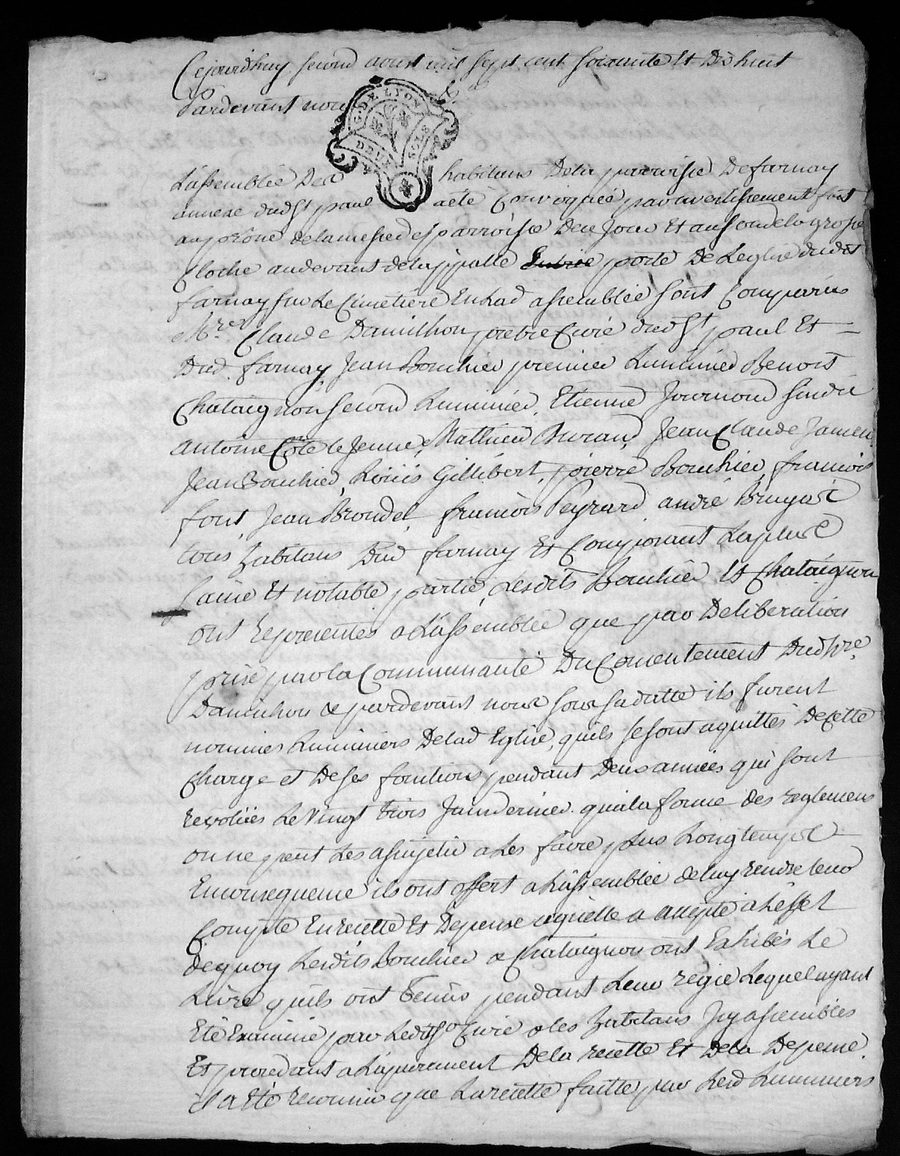 Cejourdhuy second aoust mil sept cent soixante et dix huit
Pardevant nous
G. DE LYON
DEUX SOLS
Lassemblée des habitans dela parroise defarnay
annexe dud St paul a eté Convoquée par avertissement fait
au prône delamesse de parroise de ce Jour et au son de la grosse
Cloche audevant de la porte de Leglise dudit
farnay sur Le Cimetière En lad assemblée sont Comparus
Mre Claude Damilhon prêtre Curé dud St paul Et
Dud. farnay, Jean Bouchier premier Luminier Benoit
Chataignon second Luminier, Etienne Journoud sindic
antoine Coste le Jeune, Mathieu Durand, Jean Claude Jamen
Jean Bouchier, Loüis Gillibert, pierre Bouchier, francois
font, Jean Brondel, francois Peyrard andré Bruyas
tous habitans Dud farnay Et Composant La plus
saine Et notable partie Lesdits Bouchier Et Chataignon
ont Représentés a L'assemblée que par Deliberation
prise par la Communauté Du Consentement Dud Mre
Damilhon pardevant nous sous sa datte ils furent
nommés Luminiers De lad Eglise, quils se sont aquittés De cette
Charge et De ses fonctions pendant Deux années qui sont
Revolües Le vingt trois Juin dernier qu'a la forme des reglemens
on ne peut Les assujetir a Les faire plus Longtemps
En consequence ils ont offert a L'assemblée de luy rendre Leur
Compte En recette Et Depense a accepté a L'effet
De quoy Lesdits Bouchier & Chataignon ont Exhibés Le
Livre quils ont Tenus pendant Leur régie Lequel ayant
Eté Examiné par Ledit Sr Curé & les habitans Icy assemblés
Et procedant a Lapurement De la recette Et De la Depense
Il a eté reconnu que La recette faitte par Lesd Luminiers